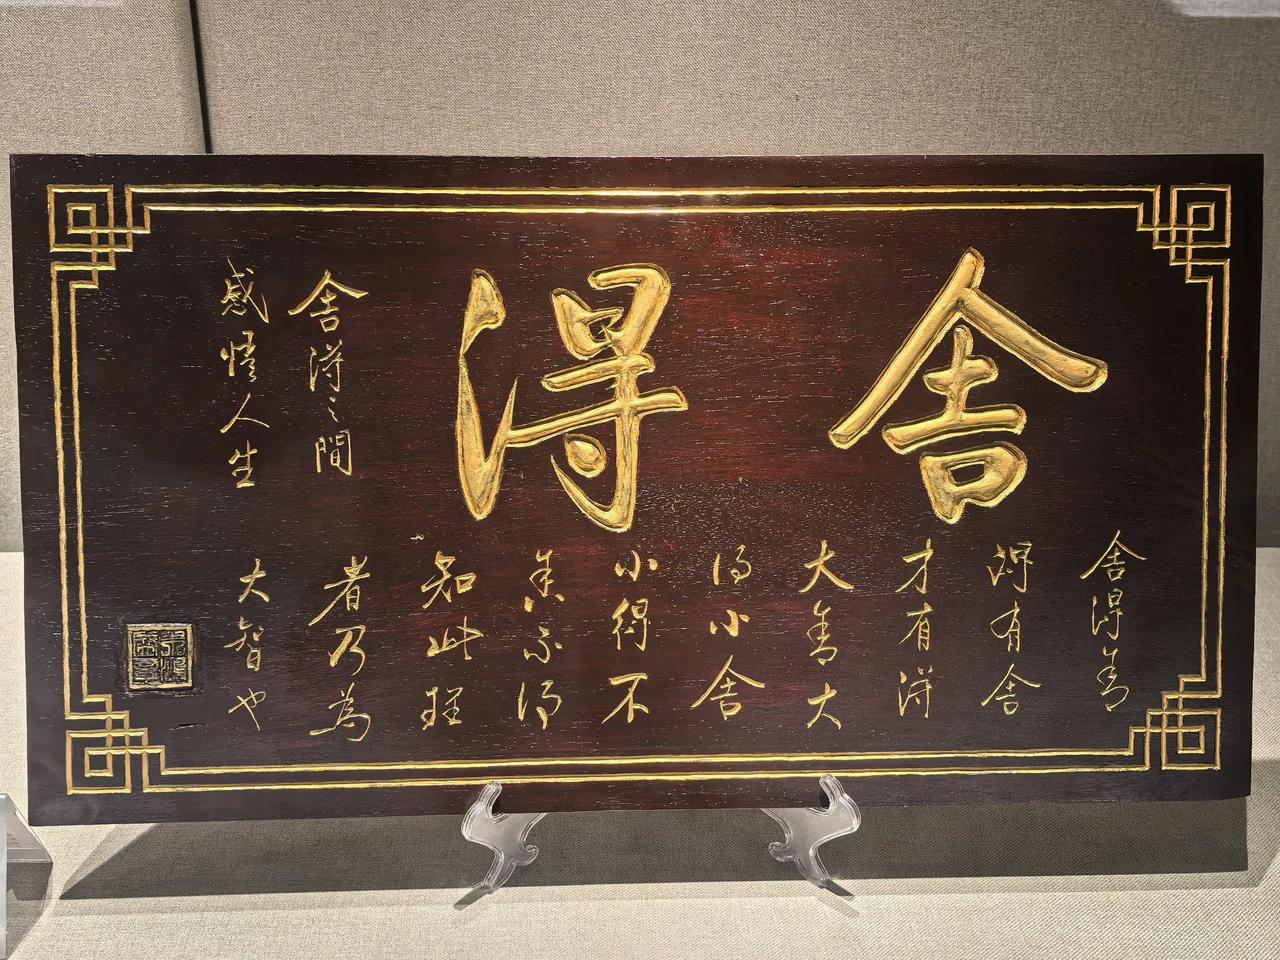 舍得
舍得舍
得有舍
才有得
大舍大
得小舍
小得不
舍不得
知此理
者乃為
大智也
舍得之間
感悟人生